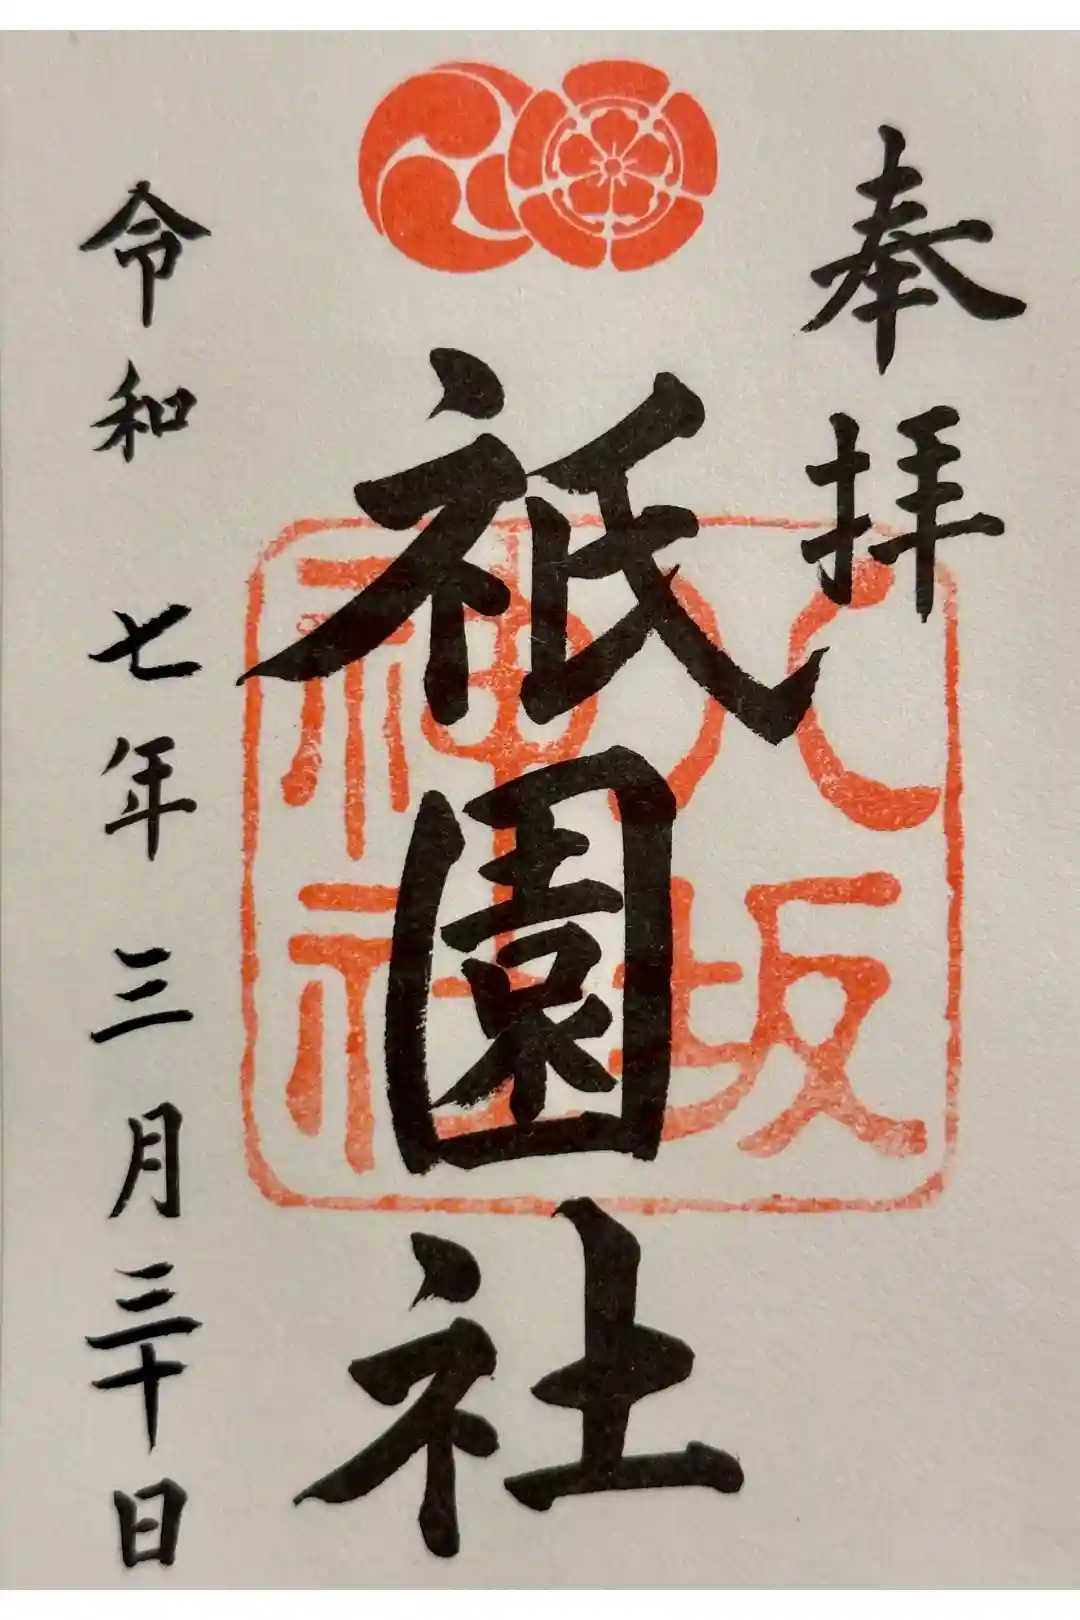 奉拝
八坂
神社
祇園社
令和七年三月三十日